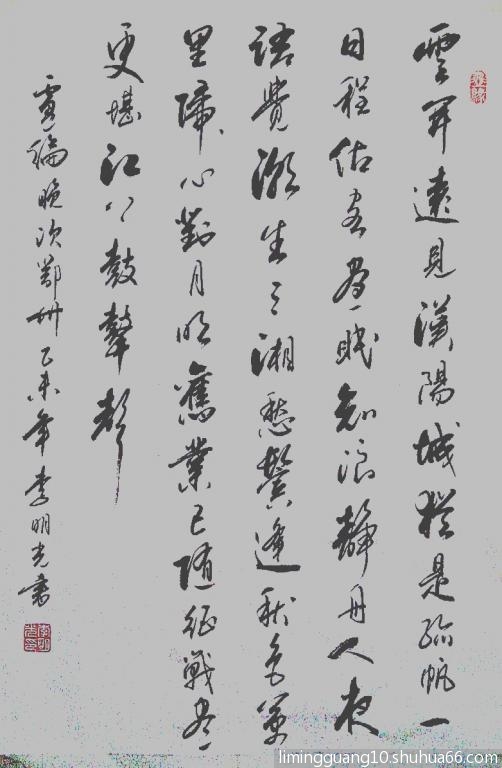 雲開遠見漢陽城猶是孤帆一
日程估客晝眠知浪靜舟人夜
語覺潮生三湘愁鬢逢秋色萬
里歸心對月明舊業已隨征戰盡
更堪江上鼓鼙聲
盧綸晚次鄂州乙未年李明光書
limingguang10.shuhua66.com